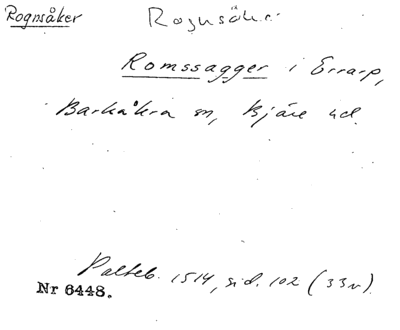 Rognsåker Rognsåker
Romssagger i Errarp,
Barkåkra sn, Bjäre hd.
Palteb. 1514, sid. 102 (33v).
Nr 6448.